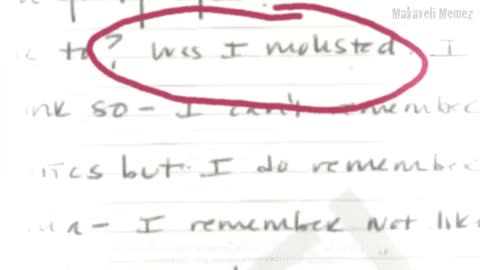 Makaveli Memez
to? Was I molested. I
nk so - I can't remember
ics but I do remember
- I remember not lik